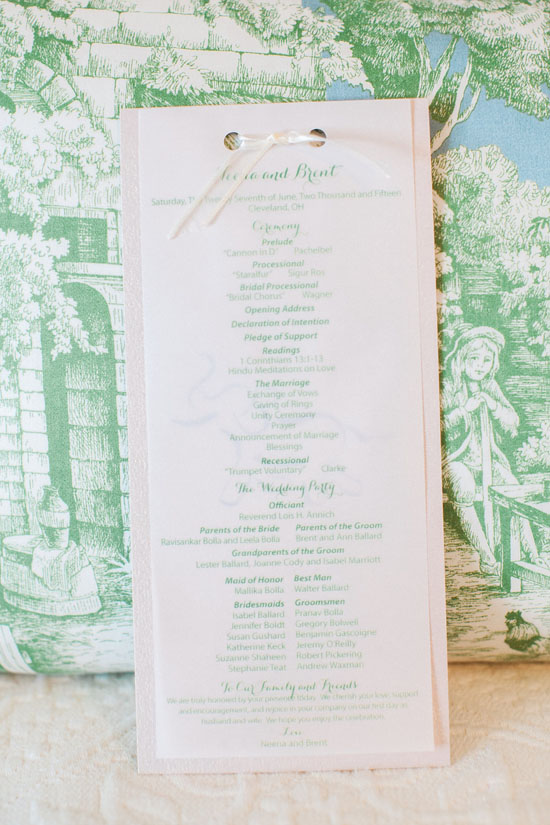 Neeria and Brent
Saturday, The Twenty Seventh of June, Two Thousand and Fifteen
Cleveland, OH
Ceremony
Prelude
"Cannon in D" Pachelbel
Processional
"Staralfur" Sigur Ros
Bridal Processional
"Bridal Chorus" Wagner
Opening Address
Declaration of Intention
Pledge of Support
Readings
1 Corinthians 13:1-13
Hindu Meditations on Love
The Marriage
Exchange of Vows
Giving of Rings
Unity Ceremony
Prayer
Announcement of Marriage
Blessings
Recessional
"Trumpet Voluntary" Clarke
The Wedding Party
Officiant
Reverend Lois H. Annich
Parents of the Bride Parents of the Groom
Ravisankar Bolla and Leela Bolla Brent and Ann Ballard
Grandparents of the Groom
Lester Ballard, Joanne Cody and Isabel Marriott
Maid of Honor Best Man
Mallika Bolla Walter Ballard
Bridesmaids Groomsmen
Isabel Ballard Pranav Bolla
Jennifer Boldt Gregory Bolwell
Susan Gushard Benjamin Gascoigne
Katherine Keck Jeremy O'Reilly
Suzanne Shaheen Robert Pickering
Stephanie Teat Andrew Waxman
To Our Family and Friends
We are truly honored by your presence today. We cherish your love, support
and encouragement, and rejoice in your company on our first day as
husband and wife. We hope you enjoy the celebration.
Love
Neeria and Brent